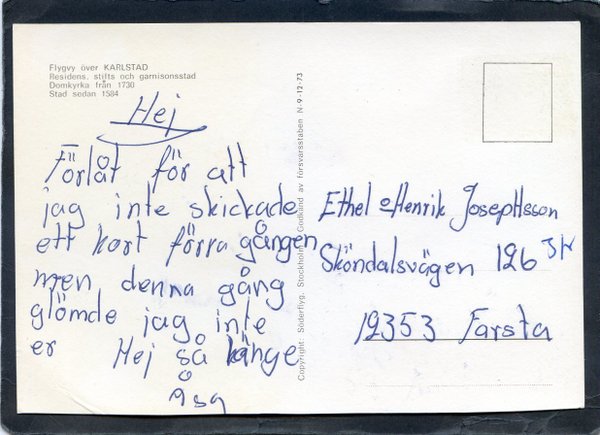 Flygvy över KARLSTAD
Residens, stifts och garnisonsstad
Domkyrka från 1730
Stad sedan 1584
Hej
Förlåt för att
jag inte skickade
ett kort förra gången
men denna gång
glömde jag inte
er Hej så länge
Åsa
Copyright: Söderflyg, Stockholm Godkänd av försvarsstaben N-9-12-73
Ethel o Henrik Josephsson
Sköndalsvägen 126
12353 Farsta